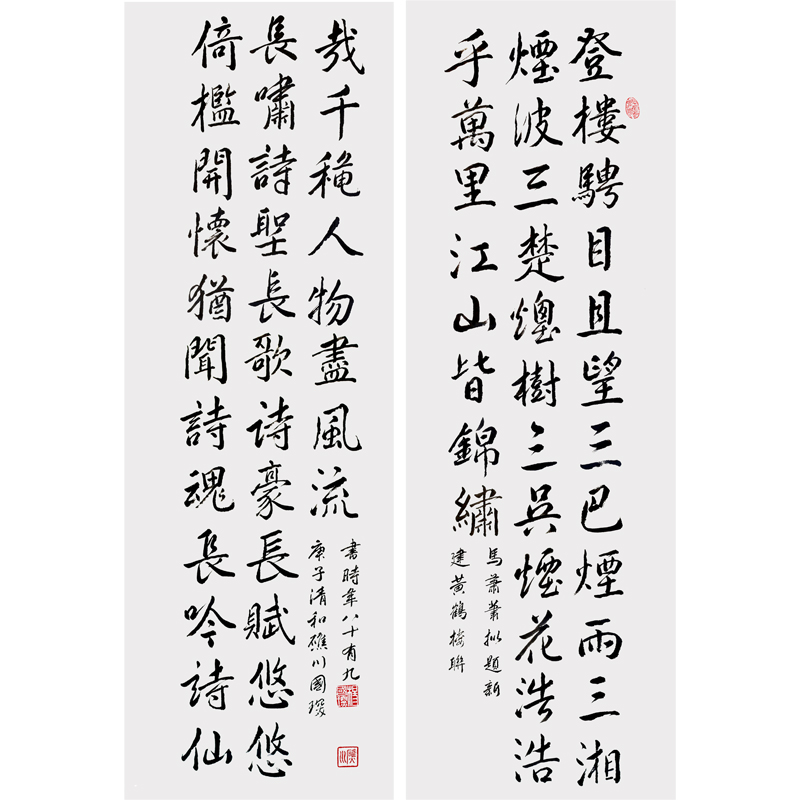 登樓騁目且望三巴煙雨三湘
煙波三楚煙樹三吳煙花浩浩
乎萬里江山皆錦繡
馬蕭蕭拟題新
建黃鶴楼聯
倚檻開懷猶聞詩魂長吟詩仙
長嘯詩聖長歌诗豪長賦悠悠
哉千穐人物盡風流
庚子清和礁川國
書時年八十有九